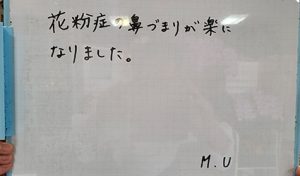 花粉症の鼻づまりが楽に
なりました。
M.U